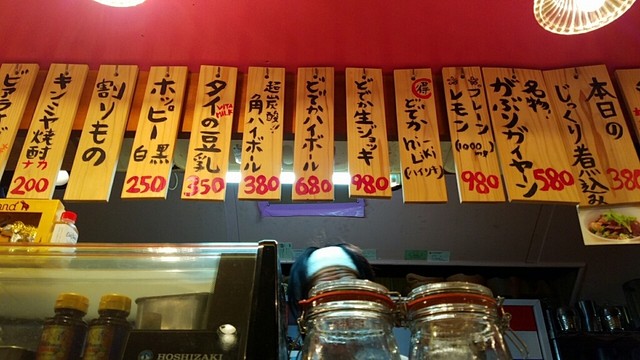 本日の
じっくり煮込み
380
名物
がぶりガイヤン
580
プレーン
レモン
(1000mp)
980
得
どでか
hi-Liki
(ハイリキ)
どでか生ジョッキ
980
どでかハイボール
680
超炭酸!!
角ハイボール
380
タイの豆乳
VITA MILK
350
ホッピー
白 黒
250
割りもの
キンミヤ焼酎
ナカ
200
ビアライ
HOSHIZAKI